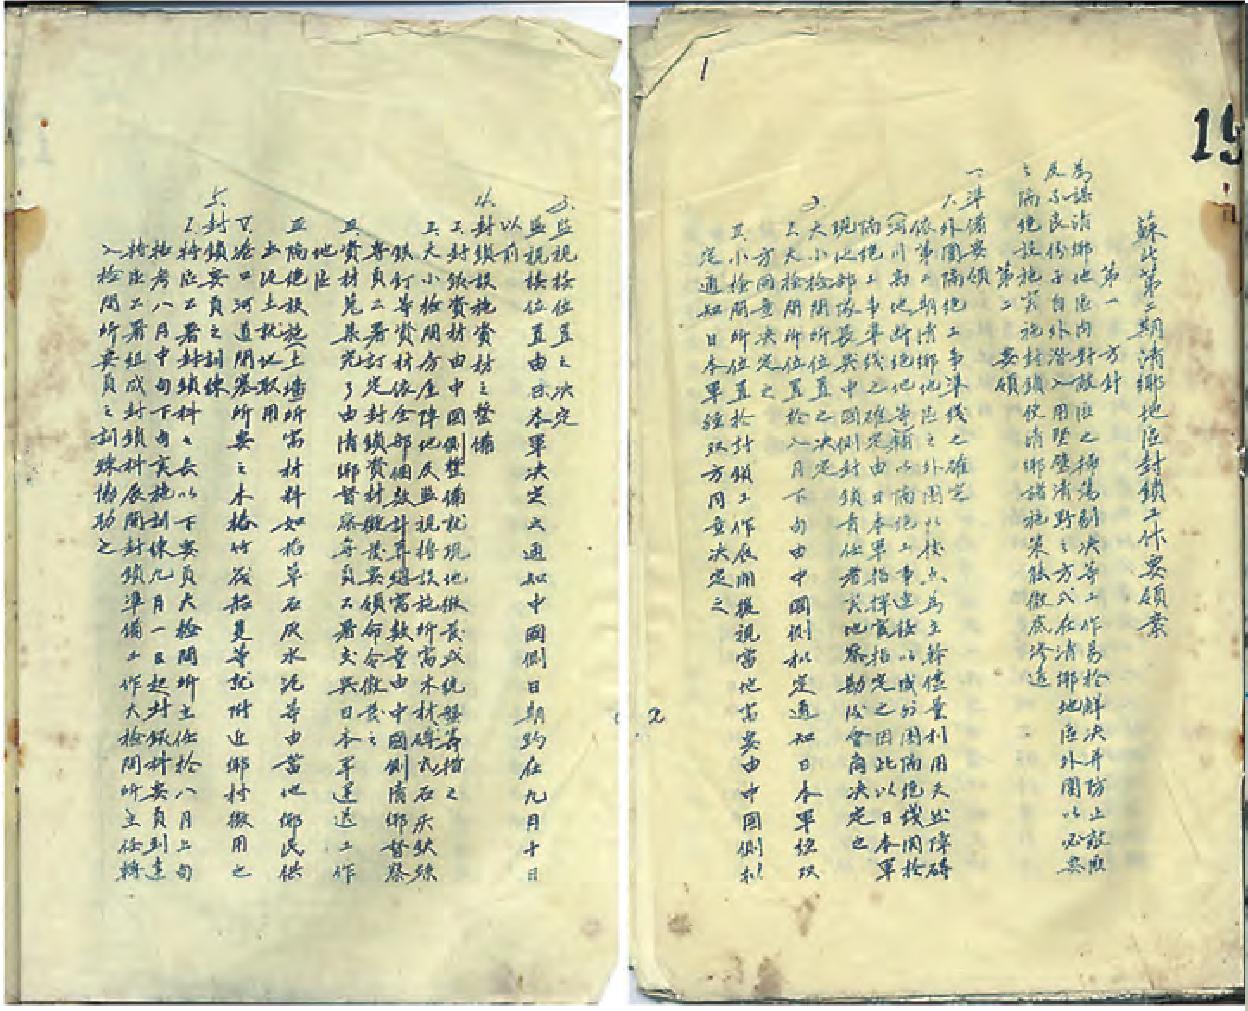 15
1
蘇北第二期清鄉地區封鎖工作要領案
第一 方針
為謀清鄉地區內對敵匪之掃蕩剔決等工作易於解決并防止敵匪
及不良份子自外潛入用堅壁清野之方式在清鄉地區外圍以必要
之隔絕設施實施封鎖使清鄉諸施策能徹底滲透
第二 要領
一、準備要領
1.外圍隔絕工事準線之確定
依第二期清鄉地區之外圍以據點為主幹儘量利用天然障碍
(河川高地斷絕地等)輔以隔絕工事連接以成外圍隔絕綫關於
隔絕工事準綫之確定由日本軍指揮官指定之因此以日本軍
現地部隊長與中國側封鎖責任者實地察勘後會商決定之
2
大小檢問所位置之決定
I.大檢問所位置於八月下旬由中國側拟定通知日本軍經双
方同意決定之
II.小檢問所位置於封鎖工作展開後視當地需要由中國側拟
定通知日本軍經双方同意決定之
3.監視按位置之決定
監視按位置由日本軍決定之通知中國側日期約在九月十日
以前
4.封鎖設施資材之整備
I.封鎖資材由中國側整備就現地徵發或統盤籌措之
II.大小檢問分屋陣地及監視檣設施所需木材磚瓦石灰鉄絲
銀釘等資材依全部個數計算總需数量由中國側清鄉督察
專員公署訂定封鎖資材徵發要領命令徵發之
III.資材見集完了由清鄉督察專員公署交與日本軍運送工作
地區
隔絕設施土墻所需材料如稻草石灰水泥等由當地鄉民供
出泥土就地取用
V.港口河道閉塞所要之木樁竹筏船隻等就附近鄉村徵用之
5.封鎖要員之訓練
I.特區公署封鎖科之長以下要員大檢問所主任於八月上旬
招考八月中旬下旬實施訓練九月一日起封鎖科要員到達
特區公署組成封鎖科展開封鎖準備工作大檢問所主任轉
入檢問所要員之訓練協助之